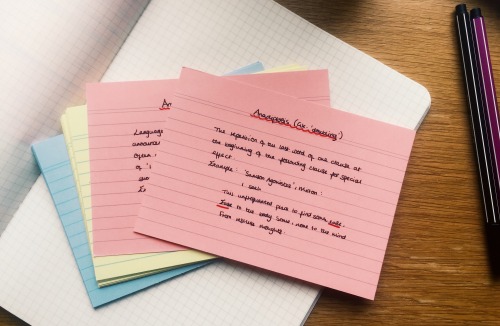 Anadiplosis (Gk. 'doubling')
The repetition of the last word of one clause at
the beginning of the following clause for special
effect.
Example: 'Samson Agonistes', Milton.
I seek
This unfrequented place to find some ease,
Ease to the body some, none to the mind
From restless thoughts.
An
Language
of